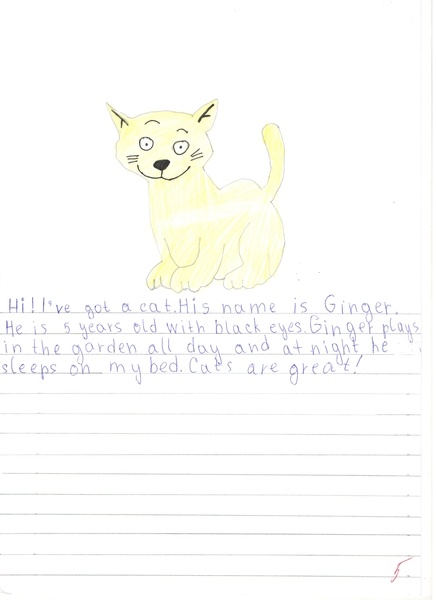 Hi! I've got a cat. His name is Ginger.
He is 5 years old with black eyes. Ginger plays
in the garden all day and at night he
sleeps on my bed. Cats are great!
5